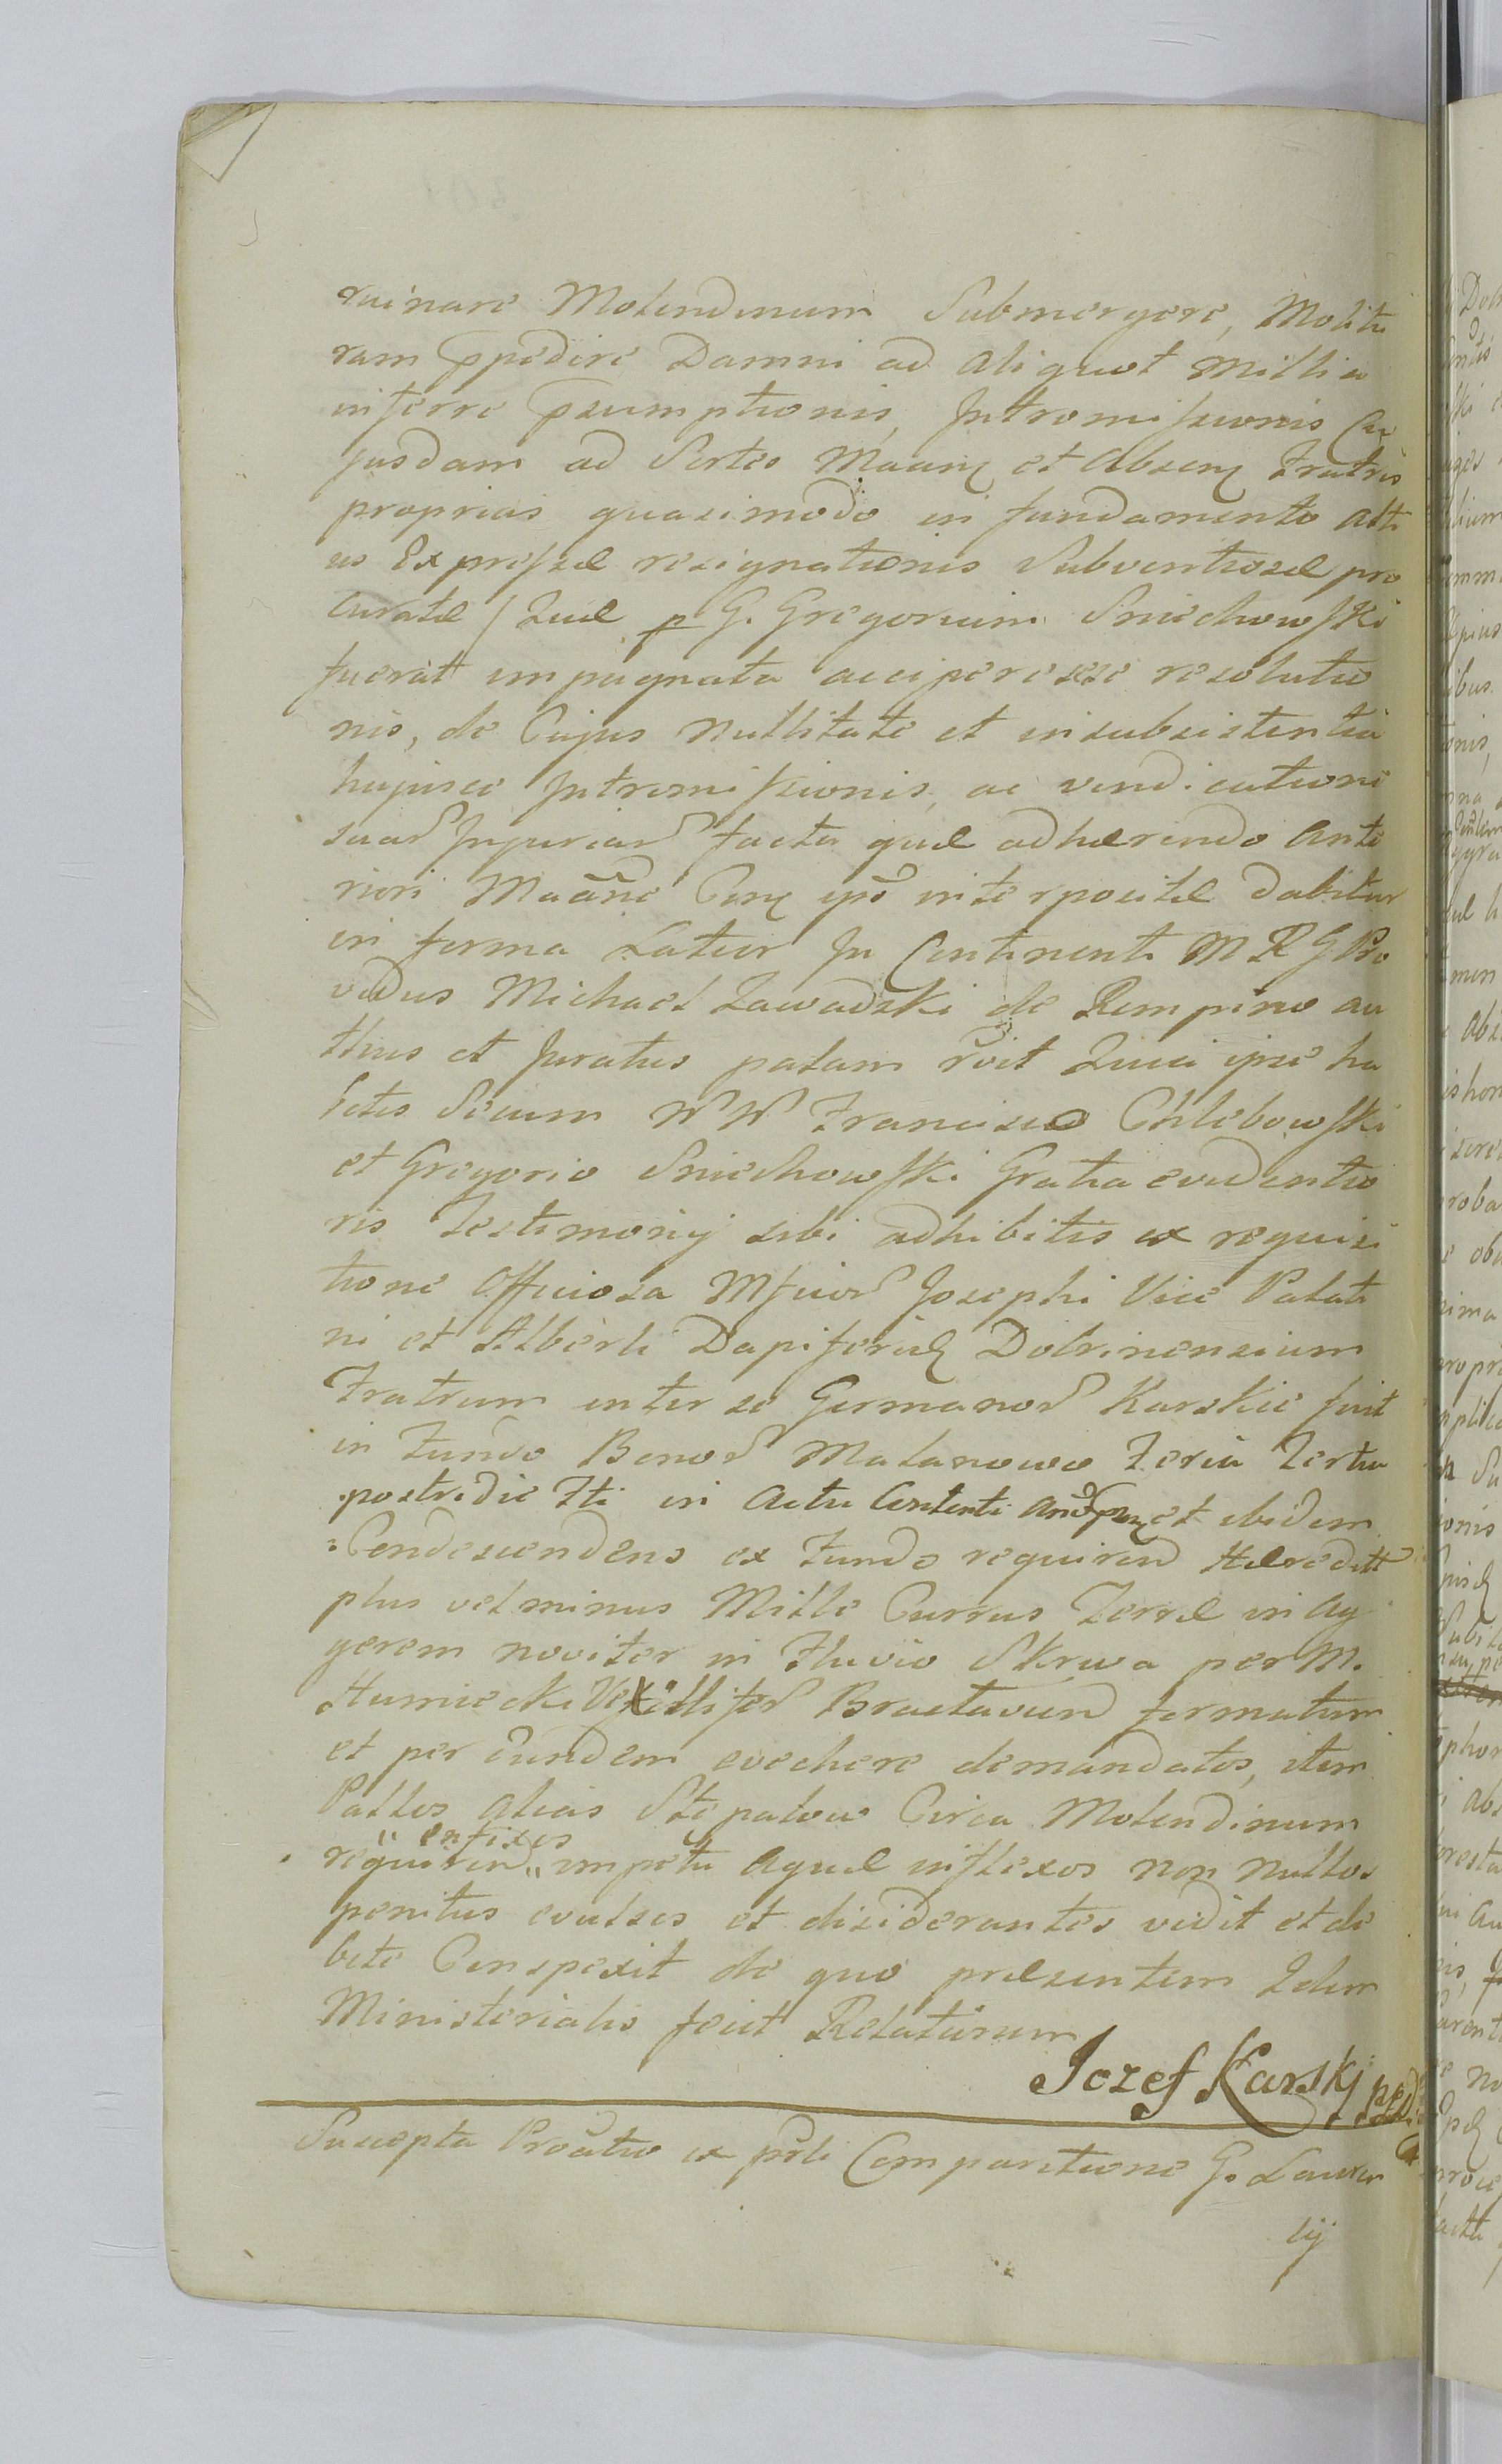 ruinare Molendinum Submergere, Molitu
ram Ppedire Damni ad aliquot Millia
inferre Psumptionis, Intromissionis Cu
jusdam ad Sortes et Absen Fratris
proprias quasimodo in fundamento alti
us Expressæ resignationis Subventiosæ pro
curatæ / Quæ p G. Gregorium Sniechowski
fuerat impugnata accipere sese resolutio
nis, de Cujus Nullitate et insubsistentia
hujusce Intromissionis, ac vendicatione
suar Injuriar facta quæ adhærendo Ante
riori interpositæ dabitur
in forma Latior In Continenti M R G Pro
vidus Michael Zawadzki de Rempino au
thus et Juratus palam rvit Quia ipse ha
bitis Secum W W Francisco Chlebowski
et Gregorio Sniechowski Gratia evidentio
ris Testimonij sibi adhibitis ex requisi
tione Officiosa Mficor Josephi Vice Palati
ni et Alberti Dapiferid Dobrinensium
Fratrum inter se Germanor Karskie fuit
in Fundo Bonor Malanowo Feria Tertia
postridie Fti in Actu Contenti et ibidem
Condescendens ex Fundo requirend Hæreditt
plus vel minus Mille Currus Terræ in Ag
gerem noviter in Fluvio Skrwa per M.
Humiecki Vexillifer Braclavien formatum
et per Eundem evechere demandatos, item
Pallos alias Stępalow Circa Molendinum
" enfixos
requirend " impetu Aquæ inflexos non nullos
penitus evulsos et desiderantes vidit et de
bite Conspexit de quo præsentem Idem
Ministerialis fecit Relationem
Jozef Karskj
Suscepta Proatio ex prli Comparitione G. Lauren
tij